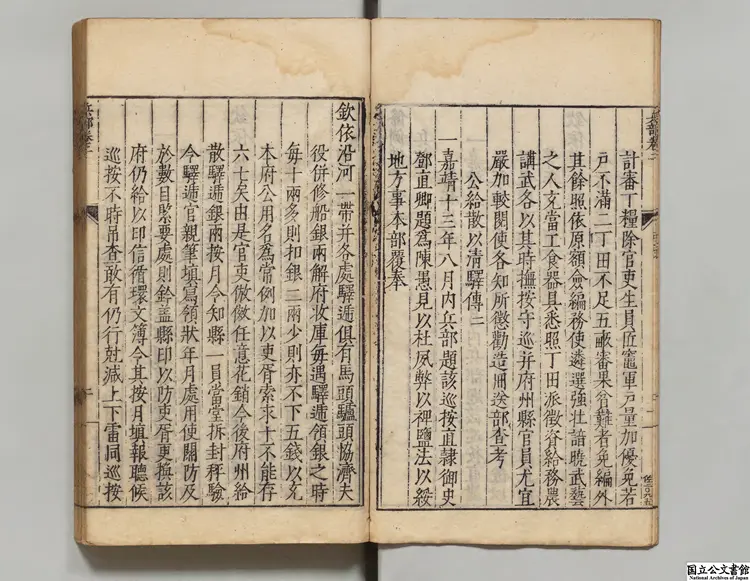 計審丁糧除官吏生員匠竈軍戶量加優免若
戶不滿二丁田不足五畝審果貧難者免編外
其餘照依原額僉編務使遴選強壯諳曉武藝
之人充當工食器具悉照丁田派徵各給務農
講武各以其時撫按守巡并府州縣官員尤宜
嚴加較閱使各知所懲勸造冊送部查考
公給散以清驛傳二
一嘉靖十三年八月内兵部題該巡按直隸御史
鄧直卿題為陳愚見以杜夙弊以裨鹽法以綏
地方事本部覆奉
欽依沿河一帶并各處驛遞俱有馬頭驢頭協濟夫
役併修船銀兩解府收庫每遇驛遞領銀之時
每十兩多則扣銀二兩少則亦不下五錢以充
本府公用名為常例加以吏胥索求十不能存
六七矣由是官吏倣傚任意花銷今後府州給
散驛遞銀兩按月令知縣一員當堂拆封秤驗
令驛遞官親筆填寫領狀年月處用使關防及
於數目緊要處則鈐蓋縣印以防吏胥更換該
府仍給以印信循環文簿令其按月填報聽候
巡按不時吊查敢有仍行尅減上下雷同巡按
兵部卷二
国立公文書館
National Archives of Japan